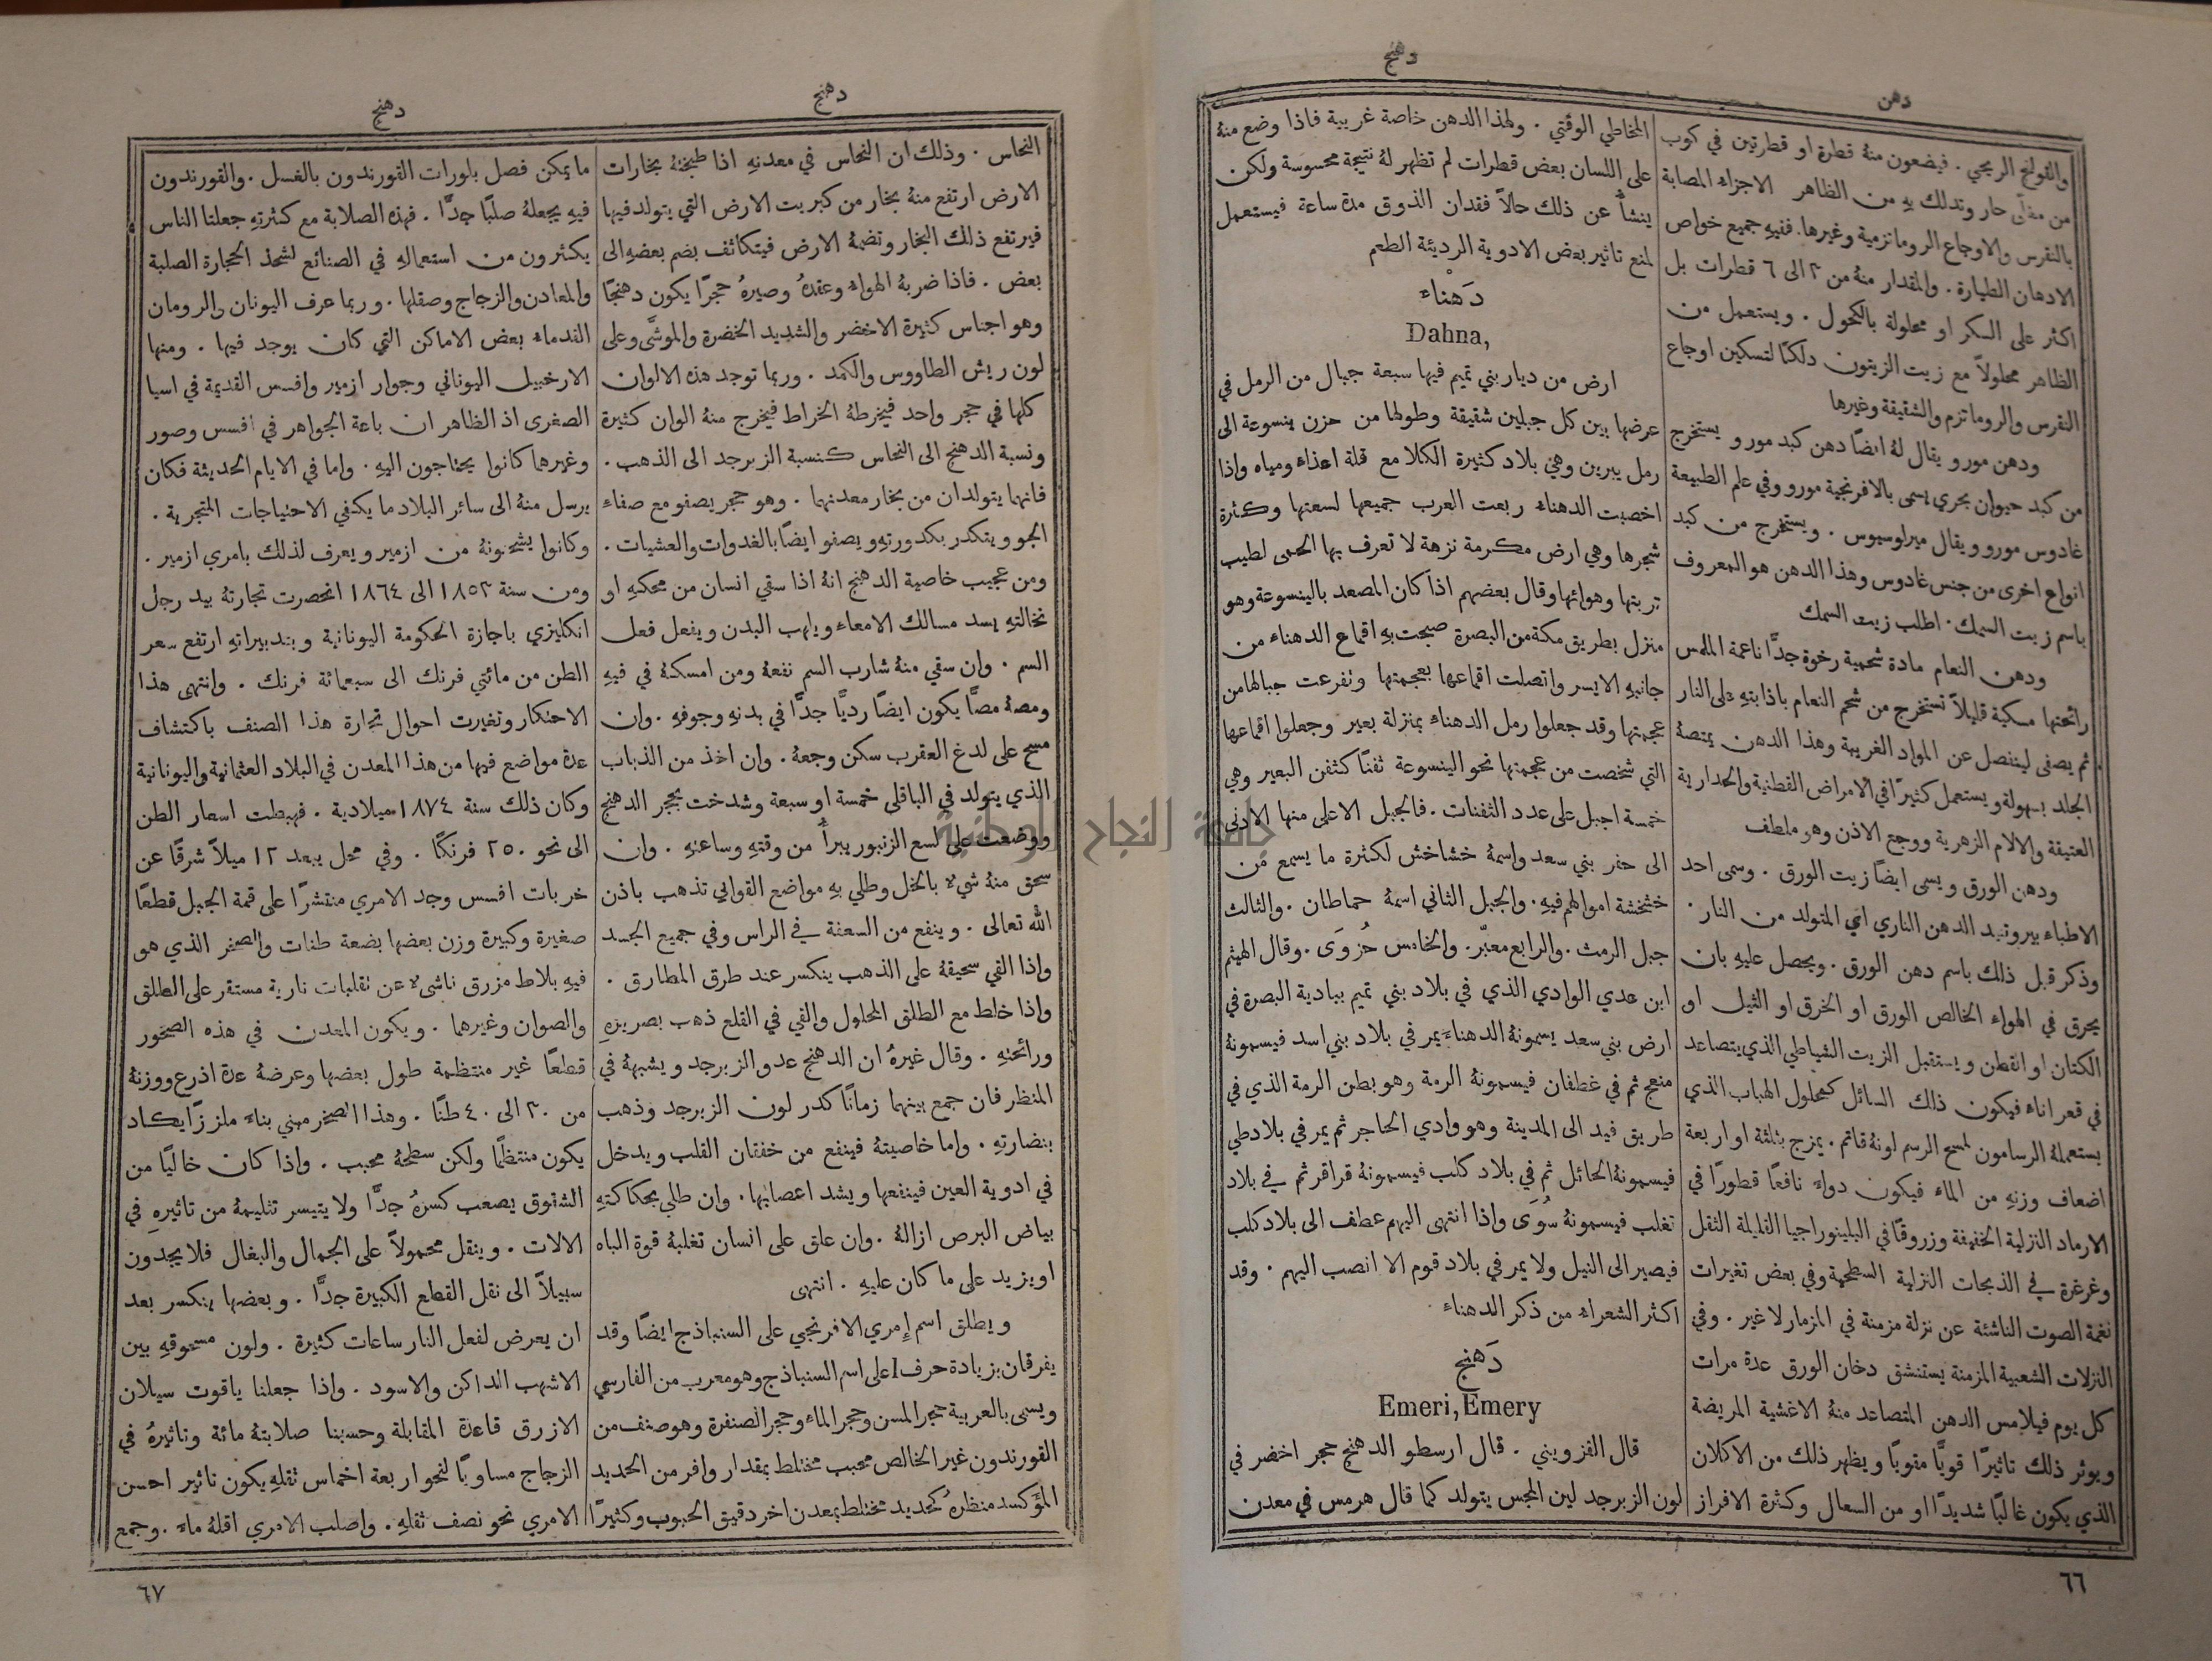 دهن
دهنج
والقولنج الريحي . فيضعون منهُ قطرة او قطرتين في كوب
من مغلّى حار وتدلك بهِ من الظاهر الاجزاء المصابة
بالنقرس والاوجاع الروماتزمية وغيرها. ففيهِ جميع خواص
الادهان الطيارة . والمقدار منهُ من ٢ الى ٦ قطرات بل
اكثر على السكر او محلولة بالكحول . ويستعمل من
الظاهر محلولاً مع زيت الزيتون دلكًا لتسكين اوجاع
النقرس والروماتزم والشقيقة وغيرها
ودهن مورو يقال لهُ ايضًا دهن كبد مورو يستخرج
من كبد حيوان بحري يسمى بالافرنجية مورو وفي علم الطبيعة
غادوس مورو ويقال ميرلوسيوس . ويستخرج من كبد
انواع اخرى من جنس غادوس وهذا الدهن هو المعروف
باسم زيت السمك . اطلب زيت السمك
ودهن النعام مادة شحمية رخوة جدًّا ناعمة الملمس
رائحتها مسكية قليلاً تستخرج من شحم النعام باذابتهِ على النار
ثم يصفى لينفصل عن المواد الغريبة وهذا الدهن يمتصهُ
الجلد بسهولة ويستعمل كثيرًا في الامراض القطنية والحدارية
العتيقة والآلام الزهرية ووجع الاذن وهو ملطف
ودهن الورق ويسمى ايضًا زيت الورق . وسمى احد
الاطباء بيروتيد الدهن الناري اي المتولد من النار .
وذكر قبل ذلك باسم دهن الورق . ويحصل عليهِ بان
يحرق في الهواء الخالص الورق او الخرق او التيل او
الكتان او القطن ويستقبل الزيت الشياطي الذي يتصاعد
في قعر اناء فيكون ذلك السائل كمحلول الهباب الذي
يستعملهُ الرسامون لمسح الرسم لونهُ قاتم . يمزج بثلثة او اربعة
اضعاف وزنهِ من الماء فيكون دواء نافعًا قطورًا في
الارماد النزلية الخفيفة وزروقًا في البلينوراجيا القليلة الثقل
وغرغرة في الذبحات النزلية السطحية وفي بعض تغيرات
نغمة الصوت الناشئة عن نزلة مزمنة في المزمار لا غير . وفي
النزلات الشعبية المزمنة يستنشق دخان الورق عدة مرات
كل يوم فيلامس الدهن المتصاعد منهُ الاغشية المريضة
ويوثر ذلك تاثيرًا قويًّا مقويًا ويظهر ذلك من الاكلان
الذي يكون غالبًا شديدًا او من السعال وكثرة الافراز
المخاطي الوقتي . ولهذا الدهن خاصة غريبة فاذا وضع منهُ
على اللسان بعض قطرات لم تظهر لهُ نتيجة محسوسة ولكن
ينشأُ عن ذلك حالاً فقدان الذوق مدة ساعة فيستعمل
لمنع تاثير بعض الادوية الرديئة الطعم
دَهْناء
Dahna,
ارض من ديار بني تميم فيها سبعة جبال من الرمل في
عرضها بين كل جبلين شقيقة وطولها من حزن ينسوعة الى
رمل يبرين وهي بلاد كثيرة الكلا مع قلة اعذاء ومياه واذا
اخصبت الدهناء ربعت العرب جميعها لسعتها وكثرة
شجرها وهي ارض مكرمة نزهة لا تعرف بها الحمى لطيب
تربتها وهوائها وقال بعضهم اذا كان المصعد بالينسوعة وهو
منزل بطريق مكة من البصرة صبحت بهِ اقماع الدهناء من
جانبهِ الايسر واتصلت اقماعها بعجمتها وتفرعت جبالها من
عجمتها وقد جعلوا رمل الدهناء بمنزلة بعير وجعلوا اقماعها
التي شخصت من عجمتها نحو الينسوعة ثفنًا كثفن البعير وهي
خمسة اجبل على عدد الثفنات . فالجبل الاعلى منها الادنى
الى حفر بني سعد واسمهُ خشاخش لكثرة ما يسمع من
خشخشة اموالهم فيهِ. والجبل الثاني اسمهُ حماطان . والثالث
جبل الرمث . والرابع معبّر. والخامس حُزوَى . وقال الهيثم
ابن عدي الوادي الذي في بلاد بني تميم ببادية البصرة في
ارض بني سعد يسمونهُ الدهناء يمر في بلاد بني اسد فيسمونهُ
منعج ثم في غطفان فيسمونهُ الرمة وهو بطن الرمة الذي في
طريق فيد الى المدينة وهو وادي الحاجر ثم يمر في بلاد طي
فيسمونهُ الحائل ثم في بلاد كلب فيسمونهُ قراقر ثم في بلاد
تغلب فيسمونهُ سُوَى واذا انتهى اليهم عطف الى بلاد كلب
فيصير الى النيل ولا يمر في بلاد قوم الا انصب اليهم . وقد
اكثر الشعراء من ذكر الدهناء
دَهنج
Emeri, Emery
قال القزويني . قال ارسطو الدهنج حجر اخضر في
لون الزبرجد لين المجس يتولد كما قال هرمس في معدن
٦٦
دهنج
دهنج
النحاس . وذلك ان النحاس في معدنهِ اذا طبخهُ بخارات
الارض ارتفع منهُ بخار من كبريت الارض التي يتولد فيها
فيرتفع ذلك البخار وتضمهُ الارض فيتكاثف بضم بعضهِ الى
بعض . فاذا ضربهُ الهواء وعقدهُ وصيرهُ حجرًا يكون دهنجًا
وهو اجناس كثيرة الاخضر والشديد الخضرة والموشَّى وعلى
لون ريش الطاووس والكمد . وربما توجد هذه الالوان
كلها في حجر واحد فيخرطهُ الخراط فيخرج منهُ الوان كثيرة
ونسبة الدهنج الى النحاس كنسبة الزبرجد الى الذهب .
فانهما يتولدان من بخار معدنهما . وهو حجر يصفو مع صفاء
الجو ويتكدر بكدورتهِ ويصفو ايضًا بالغدوات والعشيات .
ومن عجيب خاصية الدهنج انهُ اذا سقي انسان من محكهِ او
نخالتهِ يسد مسالك الامعاء ويلهب البدن ويفعل فعل
السم . وان سقي منهُ شارب السم نفعهُ ومن امسكهُ في فيهِ
ومصهُ مصًّا يكون ايضًا رديًّا جدًّا في بدنهِ وجوفهِ . وان
مسح على لدغ العقرب سكن وجعهُ . وان اخذ من الذباب
الذي يتولد في الباقلى خمسة او سبعة وشدخت بحجر الدهنج
ووضعت على لسع الزنبور يبرأُ من وقتهِ وساعتهِ . وان
سحق منهُ شيء بالخل وطلي بهِ مواضع القوابي تذهب باذن
الله تعالى . وينفع من السعفة في الراس وفي جميع الجسد
واذا القي سحيقهُ على الذهب ينكسر عند طرق المطارق .
واذا خلط مع الطلق المحلول والقي في القلع ذهب بصريرهِ
ورائحتهِ . وقال غيرهُ ان الدهنج عدو الزبرجد ويشبههُ في
المنظر فان جمع بينهما زمانًا كدر لون الزبرجد وذهب
بنضارتهِ . واما خاصيتهُ فينفع من خفقان القلب ويدخل
في ادوية العين فينفعها ويشد اعصابها . وان طلي بحكاكتهِ
بياض البرص ازالهُ . وان علق على انسان تغلبهُ قوة الباه
او يزيد على ما كان عليهِ . انتهى
ويطلق اسم إمري الافرنجي على السنباذج ايضًا وقد
يفرقان بزيادة حرف I على اسم السنباذج وهو معرب من الفارسي
ويسمى بالعربية حجر المسن وحجر الماء وحجر الصنفرة وهو صنف من
القورندون غير الخالص محبب مختلط بمقدار وافر من الحديد
المؤَكسد منظرهُ كحديد مختلط بمعدن اخر دقيق الحبوب وكثيرًا
ما يمكن فصل بلورات القورندون بالغسل . والقورندون
فيهِ يجعلهُ صلبًا جدًّا . فهذه الصلابة مع كثرتهِ جعلتا الناس
يكثرون من استعمالهِ في الصنائع لشحذ الحجارة الصلبة
والمعادن والزجاج وصقلها . وربما عرف اليونان والرومان
القدماء بعض الاماكن التي كان يوجد فيها . ومنها
الارخبيل اليوناني وجوار ازمير وافسس القديمة في اسيا
الصغرى اذ الظاهر ان باعة الجواهر في افسس وصور
وغيرها كانوا يحتاجون اليهِ . واما في الايام الحديثة فكان
يرسل منهُ الى سائر البلاد ما يكفي الاحتياجات المتجرية .
وكانوا يشحنونهُ من ازمير ويعرف لذلك بامري ازمير .
ومن سنة ١٨٥٢ الى ١٨٦٤ انحصرت تجارتهُ بيد رجل
انكليزي باجازة الحكومة اليونانية وبتدبيراتهِ ارتفع سعر
الطن من مائتي فرنك الى سبعمائة فرنك . وانتهى هذا
الاحتكار وتغيرت احوال تجارة هذا الصنف باكتشاف
عدة مواضع فيها من هذا المعدن في البلاد العثمانية واليونانية
وكان ذلك سنة ١٨٧٤ ميلادية . فهبطت اسعار الطن
الى نحو ٢٥٠ فرنكًا . وفي محل يبعد ١٢ ميلاً شرقًا عن
خربات افسس وجد الامري منتشرًا على قمة الجبل قطعًا
صغيرة وكبيرة وزن بعضها بضعة طنات والصخر الذي هو
فيهِ بلاط مزرق ناشىء عن تقلبات نارية مستقر على الطلق
والصوان وغيرهما . ويكون المعدن في هذه الصخور
قطعًا غير منتظمة طول بعضها وعرضهُ عدة اذرع ووزنهُ
من ٣٠ الى ٤٠ طنًا . وهذا الصخر مبني بناء ملززًا يكاد
يكون منتظمًا ولكن سطحهُ محبب . واذا كان خاليًا من
الشقوق يصعب كسرهُ جدًّا ولا يتيسر تثليمهُ من تاثيرهِ في
الالات . وينقل محمولاً على الجمال والبغال فلا يجدون
سبيلاً الى نقل القطع الكبيرة جدًّا . وبعضها ينكسر بعد
ان يعرض لفعل النار ساعات كثيرة . ولون مسحوقهِ بين
الاشهب الداكن والاسود . واذا جعلنا ياقوت سيلان
الازرق قاعدة المقابلة وحسبنا صلابتهُ مائة وتاثيرهُ في
الزجاج مساويًا لنحو اربعة اخماس ثقلهِ يكون تاثير احسن
الامري نحو نصف ثقلهِ . واصلب الامري اقلهُ ماء . وجمع
٦٧
جامعة النجاح الوطنية